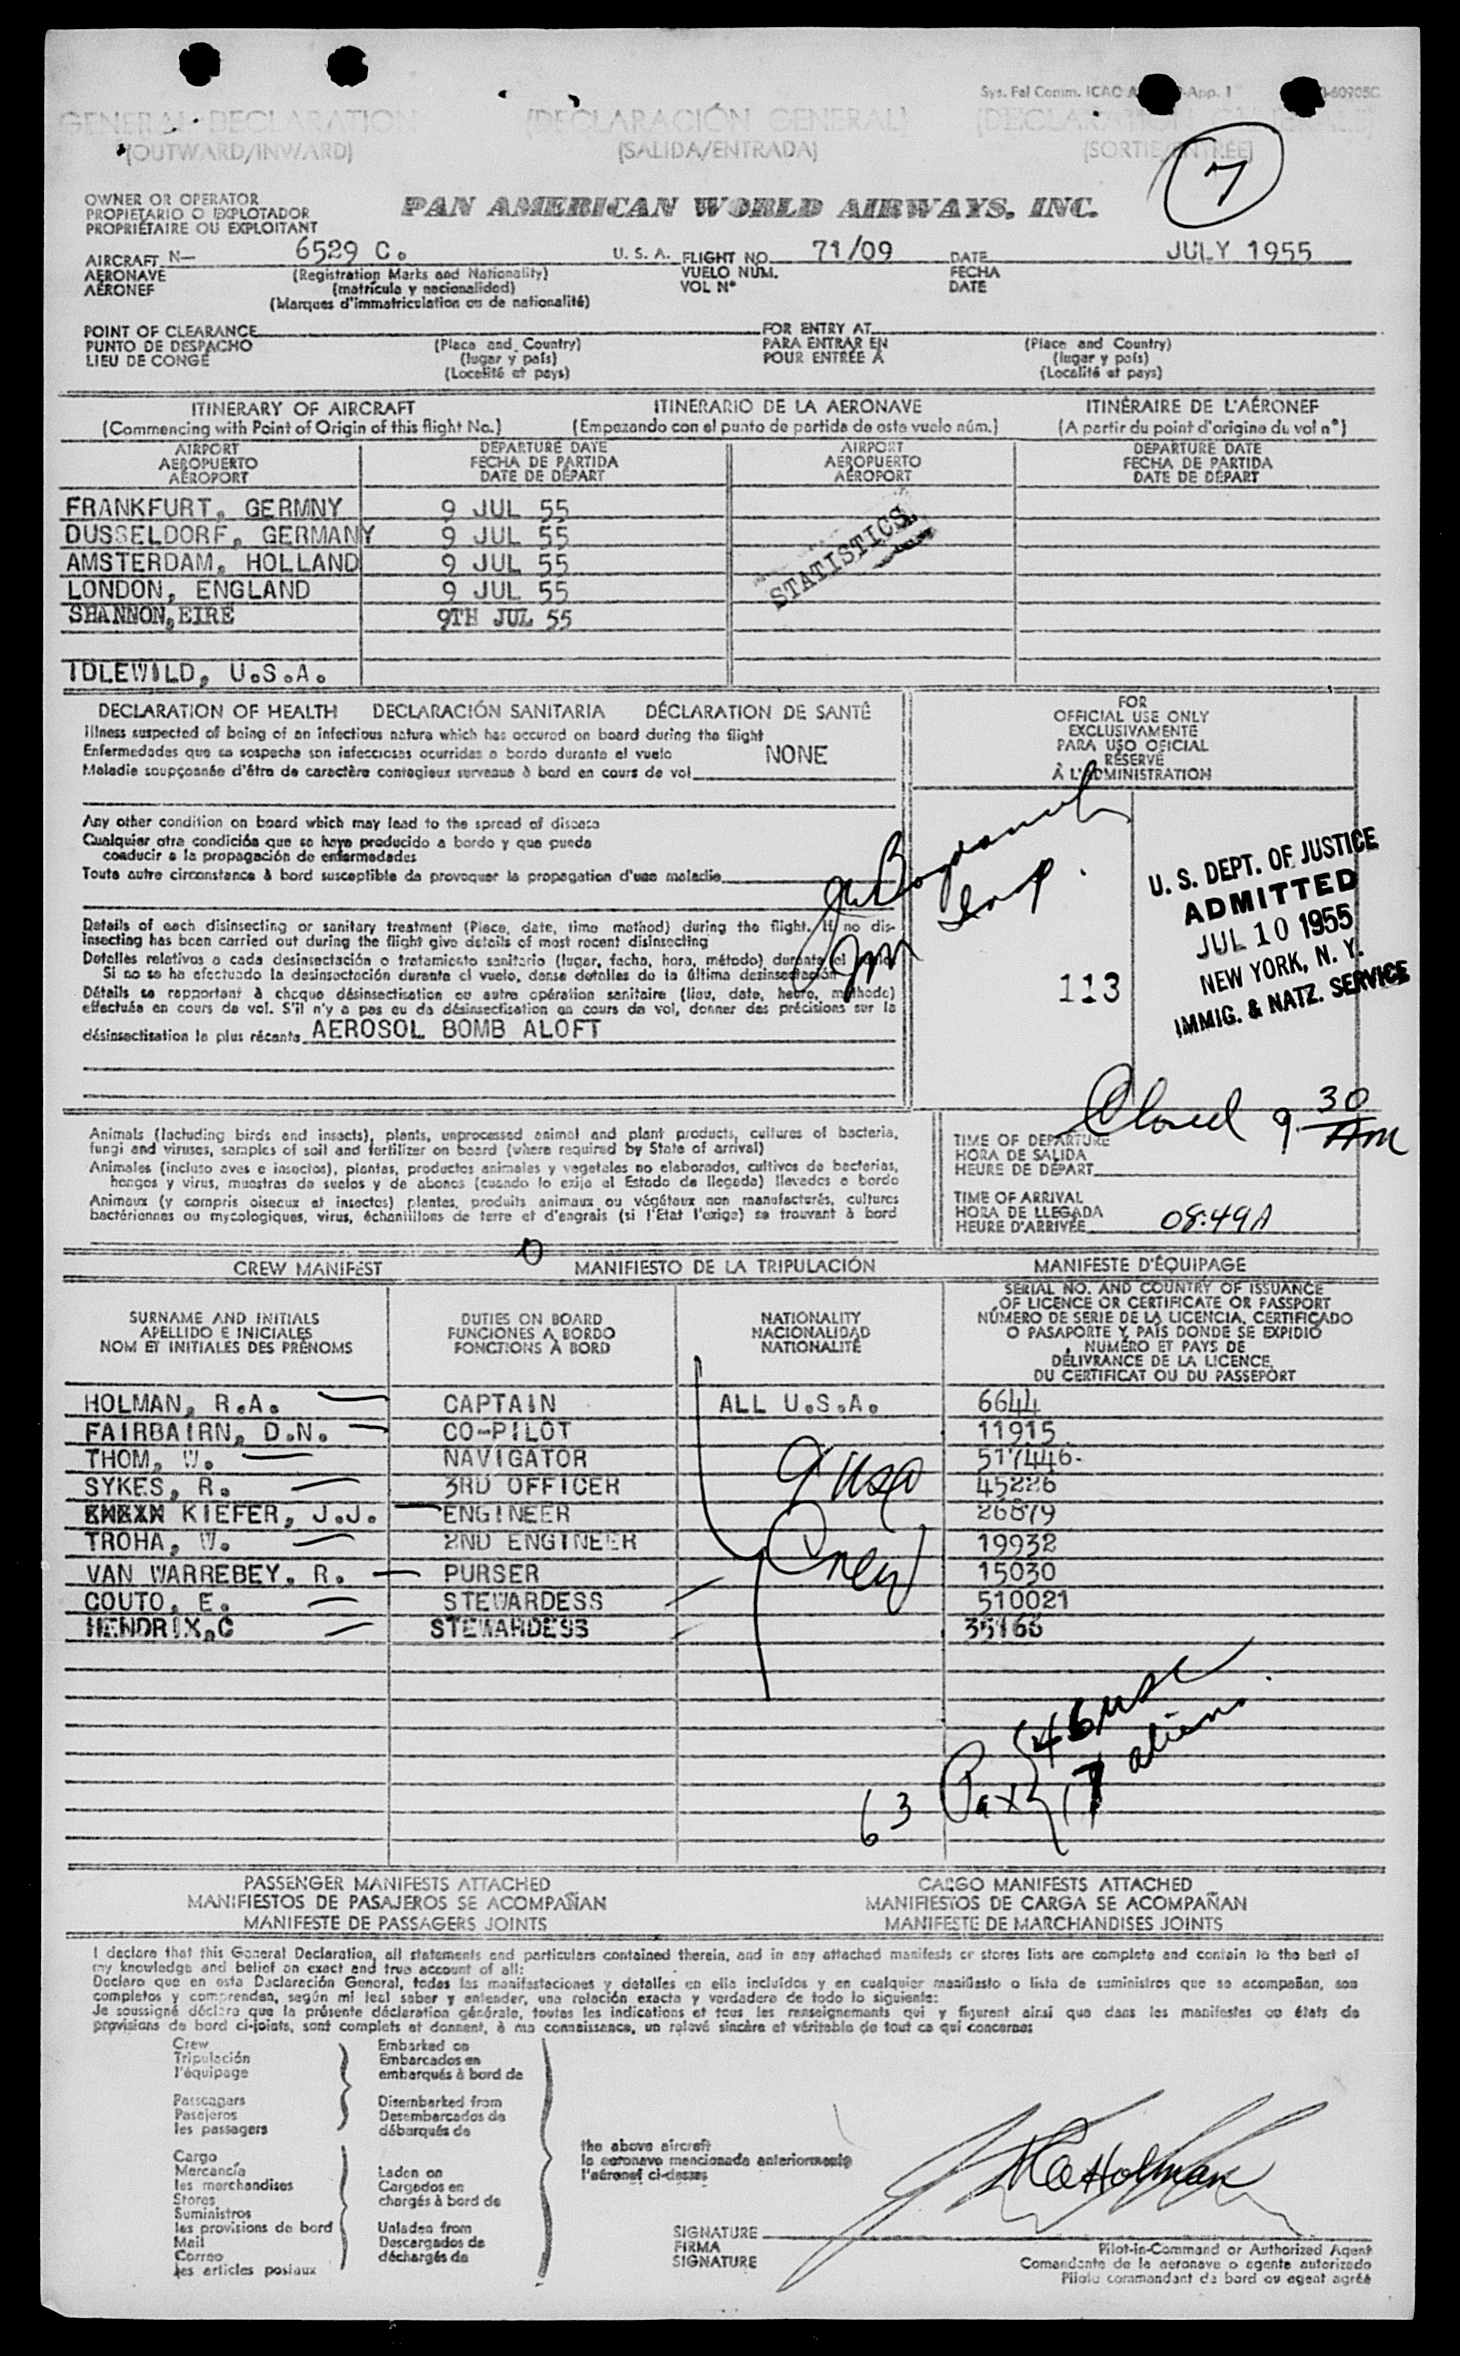 Sys. Fal Comm. ICAO
-App. 1
-60905C
GENERAL DECLARATION
(OUTWARD/INWARD)
(DECLARACIÓN GENERAL)
(SALIDA/ENTRADA)
(SORTIE/ENTRÉE)
7
OWNER OR OPERATOR
PROPIETARIO O EXPLOTADOR
PROPRIÉTAIRE OU EXPLOITANT
PAN AMERICAN WORLD AIRWAYS, INC.
AIRCRAFT N— 6529 C. U. S. A. FLIGHT NO. 71/09 DATE JULY 1955
AERONAVE (Registration Marks and Nationality) VUELO NÚM. FECHA
AÉRONEF (matrícula y nacionalidad) VOL N° DATE
(Marques d'immatriculation ou de nationalité)
POINT OF CLEARANCE FOR ENTRY AT
PUNTO DE DESPACHO (Place and Country) PARA ENTRAR EN (Place and Country)
LIEU DE CONGÉ (lugar y país) POUR ENTRÉE À (lugar y país)
(Localité et pays) (Localité et pays)
ITINERARY OF AIRCRAFT ITINERARIO DE LA AERONAVE ITINÉRAIRE DE L'AÉRONEF
(Commencing with Point of Origin of this flight No.) (Empezando con el punto de partida de este vuelo núm.) (A partir du point d'origine du vol n°)
AIRPORT DEPARTURE DATE AIRPORT DEPARTURE DATE
AEROPUERTO FECHA DE PARTIDA AEROPUERTO FECHA DE PARTIDA
AÉROPORT DATE DE DÉPART AÉROPORT DATE DE DÉPART
FRANKFURT, GERMNY 9 JUL 55
DUSSELDORF, GERMANY 9 JUL 55
AMSTERDAM, HOLLAND 9 JUL 55
LONDON, ENGLAND 9 JUL 55
SHANNON,EIRE 9TH JUL 55
IDLEWILD, U.S.A.
STATISTICS
DECLARATION OF HEALTH DECLARACIÓN SANITARIA DÉCLARATION DE SANTÉ
Illness suspected of being of an infectious nature which has occured on board during the flight
Enfermedades que se sospecha son infecciosas ocurridas a bordo durante el vuelo NONE
Maladie soupçonnée d'être de caractère contagieux survenue à bord en cours de vol
Any other condition on board which may lead to the spread of disease
Cualquier otra condición que se haya producido a bordo y que pueda
conducir a la propagación de enfermedades
Toute autre circonstance à bord susceptible de provoquer la propagation d'une maladie
Details of each disinsecting or sanitary treatment (Place, date, time method) during the flight. If no dis-
insecting has been carried out during the flight give details of most recent disinsecting
Detalles relativos a cada desinsectación o tratamiento sanitario (lugar, facha, hora, método) durante el vuelo.
Si no se ha efectuado la desinsectación durante el vuelo, dense detalles de la última dezinsectación
Détails se rapportant à chaque désinsectisation ou autre opération sanitaire (lieu, date, heure, méthode)
effectuée en cours de vol. S'il n'y a pas eu de désinsectisation en cours de vol, donner des précisions sur la
désinsectisation la plus récente AEROSOL BOMB ALOFT
FOR
OFFICIAL USE ONLY
EXCLUSIVAMENTE
PARA USO OFICIAL
RÉSERVÉ
À L'ADMINISTRATION
113
U. S. DEPT. OF JUSTICE
ADMITTED
JUL 10 1955
NEW YORK, N. Y.
IMMIG. & NATZ. SERVICE
Closed 9 30 Am
Animals (including birds and insects), plants, unprocessed animal and plant products, cultures of bacteria,
fungi and viruses, samples of soil and fertilizer on board (where required by State of arrival)
Animales (incluso aves e insectos), plantas, productos animales y vegetales no elaborados, cultivos de bacterias,
hongos y virus, muestras de suelos y de abonos (cuando lo exija el Estado de llegada) llevados a bordo
Animaux (y compris oiseaux et insectes) plantes, produits animaux ou végétaux non manufacturés, cultures
bactériennes ou mycologiques, virus, échantillons de terre et d'engrais (si l'Etat l'exige) se trouvant à bord
0
TIME OF DEPARTURE
HORA DE SALIDA
HEURE DE DÉPART
TIME OF ARRIVAL
HORA DE LLEGADA
HEURE D'ARRIVÉE 08:49A
CREW MANIFEST MANIFIESTO DE LA TRIPULACIÓN MANIFESTE D'ÉQUIPAGE
SURNAME AND INITIALS
APELLIDO E INICIALES
NOM ET INITIALES DES PRÉNOMS
DUTIES ON BOARD
FUNCIONES A BORDO
FONCTIONS À BORD
NATIONALITY
NACIONALIDAD
NATIONALITÉ
SERIAL NO. AND COUNTRY OF ISSUANCE
OF LICENCE OR CERTIFICATE OR PASSPORT
NÚMERO DE SERIE DE LA LICENCIA, CERTIFICADO
O PASAPORTE Y PAÍS DONDE SE EXPIDIÓ
NUMÉRO ET PAYS DE
DÉLIVRANCE DE LA LICENCE,
DU CERTIFICAT OU DU PASSEPORT
HOLMAN, R.A. CAPTAIN ALL U.S.A. 6644
FAIRBAIRN, D.N. CO-PILOT 11915
THOM, W. NAVIGATOR 517446
SYKES, R. 3RD OFFICER 45226
KIEFER, J.J. ENGINEER 26879
TROHA, W. 2ND ENGINEER 19932
VAN WARREBEY. R. PURSER 15030
COUTO, E. STEWARDESS 510021
HENDRIX,C STEWARDESS 35166
9 USA
Crew
63 Pax { 46 usc
17 aliens
PASSENGER MANIFESTS ATTACHED CARGO MANIFESTS ATTACHED
MANIFIESTOS DE PASAJEROS SE ACOMPAÑAN MANIFIESTOS DE CARGA SE ACOMPAÑAN
MANIFESTE DE PASSAGERS JOINTS MANIFESTE DE MARCHANDISES JOINTS
I declare that this General Declaration, all statements and particulars contained therein, and in any attached manifests or stores lists are complete and contain to the best of
my knowledge and belief an exact and true account of all:
Declaro que en esta Declaración General, todas las manifestaciones y detalles en ella incluídos y en cualquier manifiesto o lista de suministros que se acompañan, son
completos y comprenden, según mi leal saber y entender, una relación exacta y verdadera de todo lo siguiente:
Je soussigné déclare que la présente déclaration générale, toutes les indications et tous les renseignements qui y figurent ainsi que dans les manifestes ou états de
provisions de bord ci-joints, sont complets et donnent, à ma connaissance, un relevé sincère et véritable de tout ce qui concerne:
Crew Embarked on
Tripulación Embarcados en
l'équipage embarqués à bord de
Passengers Disembarked from
Pasajeros Desembarcados de
les passagers débarqués de
Cargo
Mercancía Laden on
les marchandises Cargados en
Stores chargés à bord de
Suministros
les provisions de bord Unladen from
Mail Descargados de
Correo déchargés de
les articles postaux
the above aircraft
la aeronave mencionada anteriormente
l'aéronef ci-dessus
RA Holman
SIGNATURE
FIRMA
SIGNATURE
Pilot-in-Command or Authorized Agent
Comandante de la aeronave o agente autorizado
Pilote commandant de bord ou agent agréé